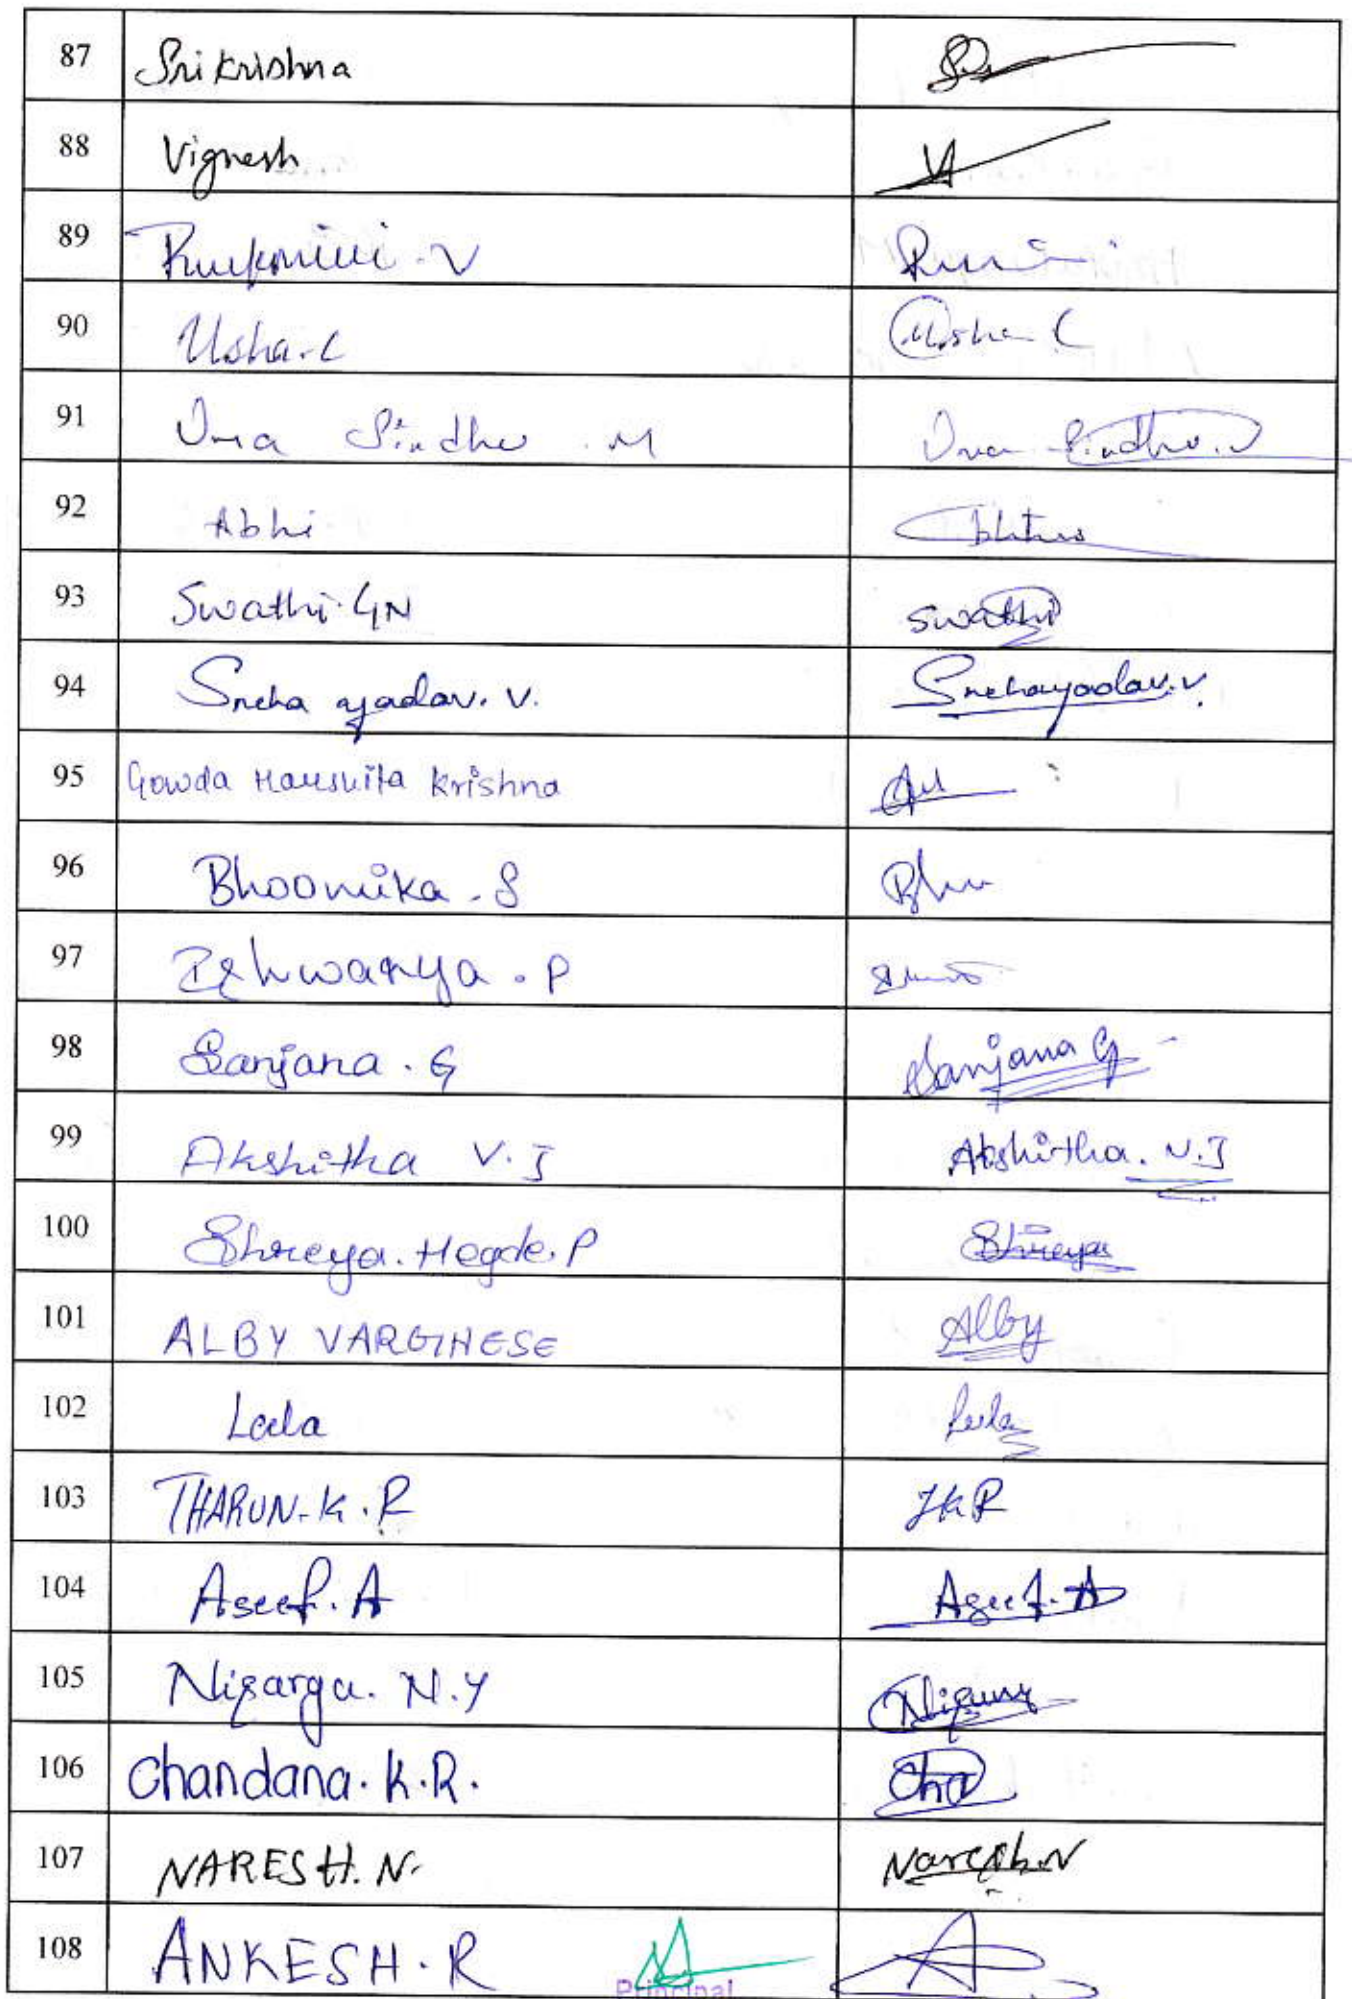 87 Srikrishna
88 Vignesh
89 Rukmini . V
90 Usha . C Usha C
91 Uma Sindhu . M Uma Sindhu .
92 Abhi
93 Swathi . GN swathi
94 Sneha yadav. V. Snehayadav. v.
95 Gowda Krishna
96 Bhoomika . S Bhu
97 Ishwarya . P
98 Sanjana . G Sanjana G
99 Akshitha V. J Akshitha. V. J
100 Shreya. Hegde. P Shreya
101 ALBY VARGHESE Alby
102 Leela Leela
103 THARUN. K . R TKR
104 Aseef. A Aseef. A
105 Nisarga. N. Y
106 Chandana. K. R. Cha
107 NARESH. N. Naresh. N
108 ANKESH . R
Principal